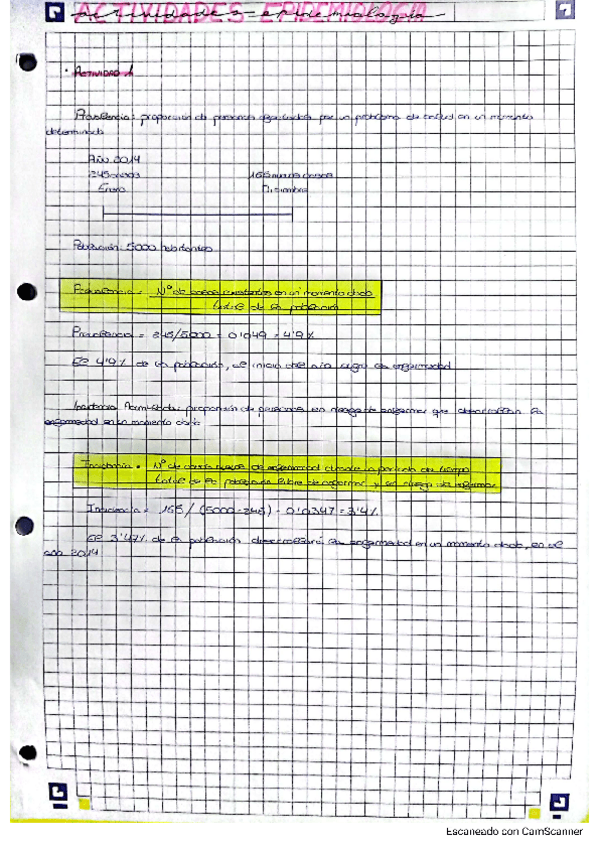 ACTIVIDADES EPIDEMIOLOGÍA
· ACTIVIDAD 1
Prevalencia: proporción de personas afectadas por un problema de salud en un momento
determinado
Año 2014
245 casos 165 nuevos casos
Enero Diciembre
Población: 5000 habitantes
Prevalencia = Nº de casos existentes en un momento dado
total de la población
Prevalencia = 245/5000 = 0'049 = 4'9%
El 4'9% de la población, al inicio del año
enfermedad
Incidencia Acumulada: proporción de personas en riesgo de enfermar que desarrollan la
enfermedad en un momento dado
Incidencia = Nº de casos nuevos de enfermedad durante un periodo de tiempo
total de la población libre de enfermar y en riesgo de enfermar
Incidencia = 165 / (5000-245) = 0'0347 = 3'4%
El 3'47% de la población desarrollará la enfermedad en un momento dado, en el
año 2014
Escaneado con CamScanner